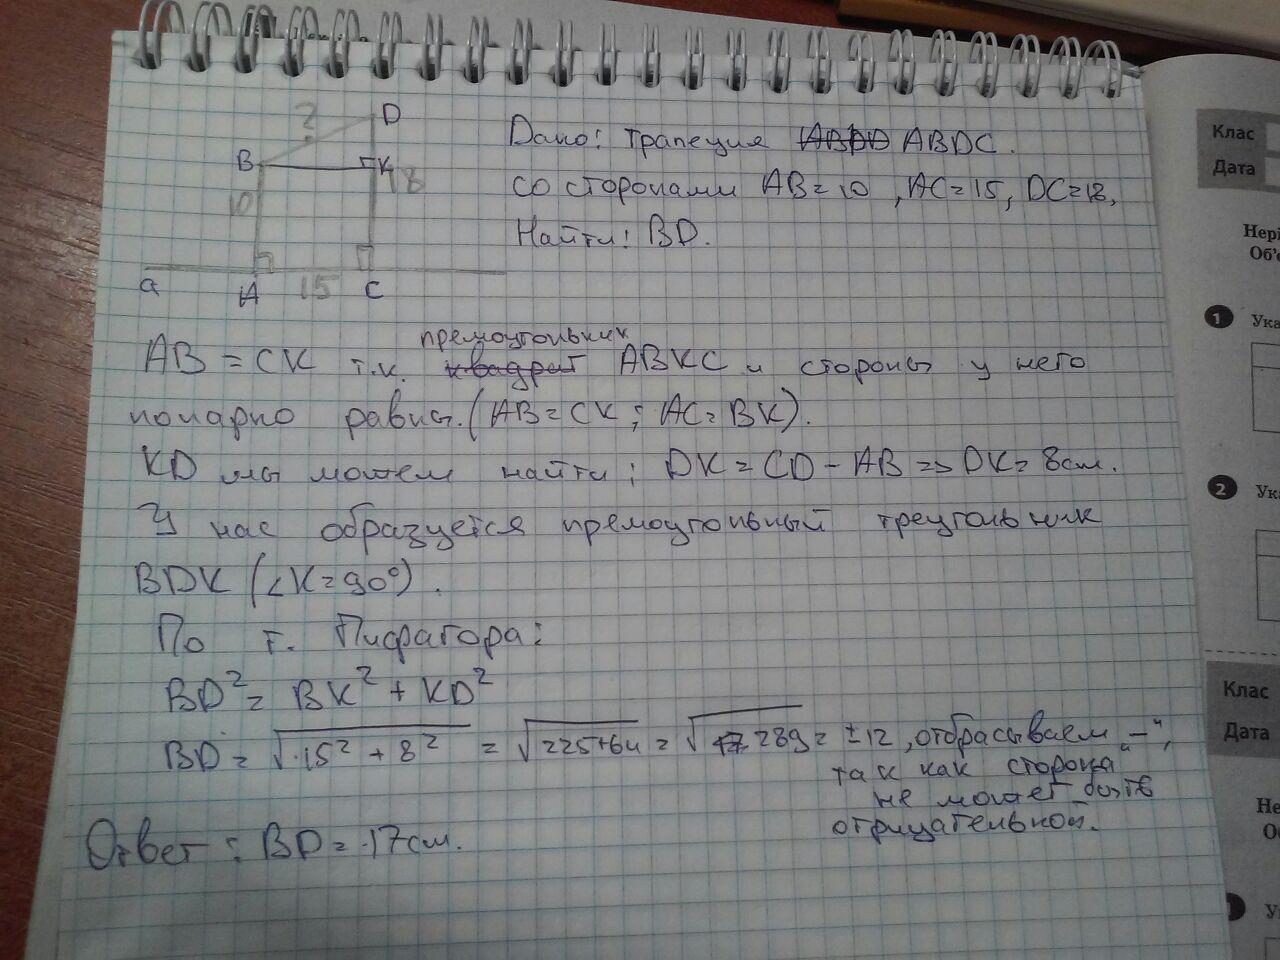 Дано: трапеция ABDC.
со сторонами AB=10, AC=15, DC=18,
Найти: BD.
?
D
B
K
18
10
a
A
15
C
AB = CK т.к. квадрат ABKC и стороны у него
премоугольник
попарно равны. (AB=CK; AC=BK).
KD мы можем найти: DK = CD - AB => DK = 8см.
У нас образуется премоугольный треугольник
BDK (∠K=90°).
По т. Пифагора:
BD² = BK² + KD²
BD = √15² + 8² = √225+64 = √289 = ±12, отбрасываем „-“,
так как сторона
не может быть
отрицательной.
Ответ: BD = 17см.
Клас
Дата
Нері
Об'є
1 Ука
2 Ука
Клас
Дата
Не